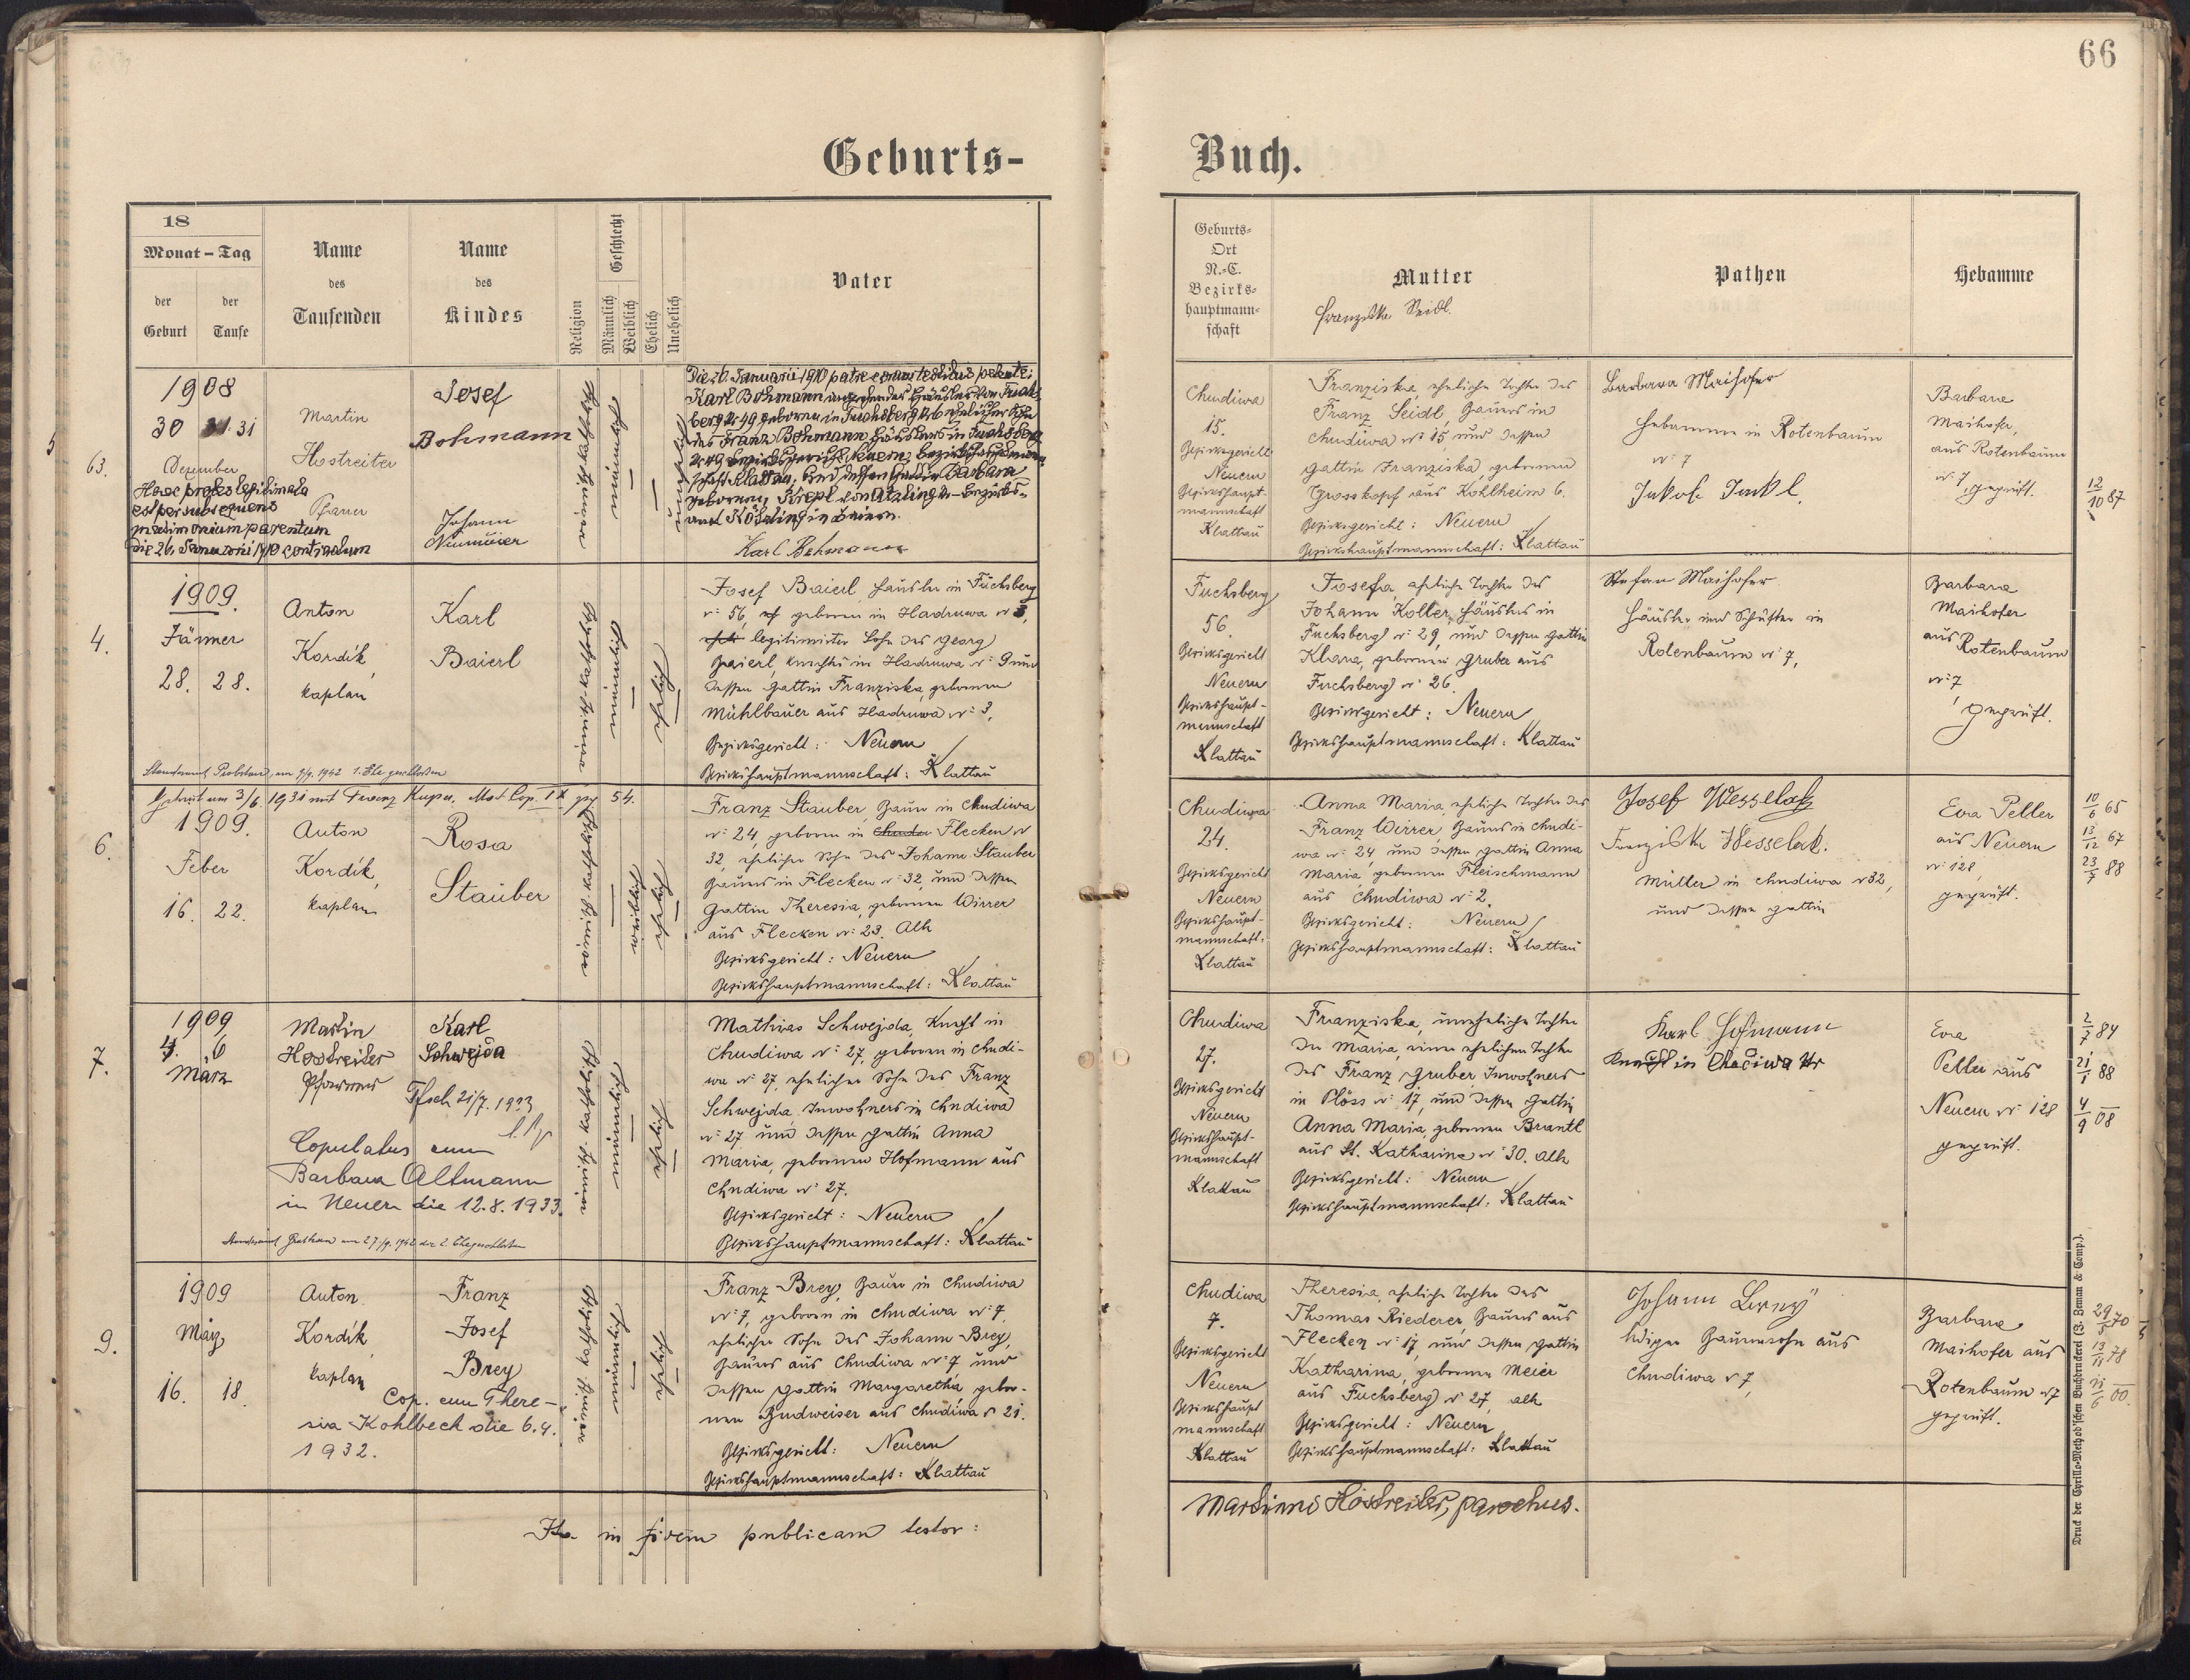 66
Geburts-
Buch.
18
Monat - Tag
der Geburt
der Taufe
Name des Taufenden
Name des Kindes
Religion
Geschlecht
Männlich
Weiblich
Ehelich
Unehelich
Vater
Geburts-
Ort
N.-C.
Bezirks-
hauptmann-
schaft
Mutter
Franziska Seidl.
Pathen
Hebamme
63.
1908
30 31. 31
Dezember
Haec proles legitimata
est per subsequens
matrimonium parentum
die 26. Januarii 1910 contractum
Martin
Hostreiter
Pfarrer
Josef
Bohmann
Johann
Neumeier
männlich
Die 26. Januarii 1910 patre coram testibus petente:
Karl Bohmann angehender Häusler von Fuchs-
berg Nr 49 geboren in Fuchsberg Nr 6 ehelicher Sohn
des Franz Bohmann Häuslers in Fuchsberg
Nr 49 Bezirksgericht Neuern, Bezirkshauptmann-
schaft Klattau, und dessen Gattin Barbara
geborenen Krepl von Atzling Bezirks-
amt Kötzting in Baiern.
Karl Bohmann
Chudiwa
15.
Bezirksgericht
Neuern
Bezirkshaupt-
mannschaft
Klattau
Franziska, eheliche Tochter des
Franz Seidl, Bauers in
Chudiwa Nr 15, und dessen
Gattin Franziska, geborenen
Grosskopf aus Kohlheim 6.
Bezirksgericht: Neuern
Bezirkshauptmannschaft: Klattau
Barbara Maihofer
Hebamme in Rotenbaum
Nr 7
Jakob Jankl.
Barbara
Maihofer,
aus Rotenbaum
Nr 7, geprüft.
12/10 87
4.
1909.
Jänner
28. 28.
Anton
Kordik,
Kaplan
Karl
Baierl
männlich
ehelich
Josef Baierl, Häusler in Fuchsberg
Nr 56, geboren in Hadruwa Nr 3,
legitimierter Sohn des Georg
Baierl, Knechts in Hadruwa Nr 9 und
dessen Gattin Franziska, geborenen
Mühlbauer aus Hadruwa Nr 3,
Bezirksgericht: Neuern
Bezirkshauptmannschaft: Klattau
Fuchsberg
56.
Bezirksgericht
Neuern
Bezirkshaupt-
mannschaft
Klattau
Josefa, eheliche Tochter des
Johann Koller, Häuslers in
Fuchsberg Nr 29, und dessen Gattin
Klara, geborenen Gruber aus
Fuchsberg Nr 26.
Bezirksgericht: Neuern
Bezirkshauptmannschaft: Klattau
Stefan Maihofer
Häusler und Schuster in
Rotenbaum Nr 7,
Barbara
Maihofer
aus Rotenbaum
Nr 7
geprüft.
Standesamt am 9/9. 1942 1. Ehe geschlossen
6.
Getraut am 3/6. 1931 mit Franz Kuper, pg 54.
1909.
Feber
16. 22.
Anton
Kordik,
Kaplan
Rosa
Stauber
weiblich
ehelich
Franz Stauber, Bauer in Chudiwa
Nr 24, geboren in Flecken Nr
32, ehelicher Sohn des Johann Stauber
Bauers in Flecken Nr 32, und dessen
Gattin Theresia, geborenen Wirrer
aus Flecken Nr 23. Alle
Bezirksgericht: Neuern
Bezirkshauptmannschaft: Klattau
Chudiwa
24.
Bezirksgericht
Neuern
Bezirkshaupt-
mannschaft:
Klattau
Anna Maria, eheliche Tochter des
Franz Wirrer, Bauers in Chudi-
wa Nr 24, und dessen Gattin Anna
Maria geborenen Fleischmann
aus Chudiwa Nr 2.
Bezirksgericht: Neuern
Bezirkshauptmannschaft: Klattau
Josef Wesselak
Franziska Wesselak.
Müller in Chudiwa Nr 32,
und dessen Gattin
Eva Peller
aus Neuern
Nr 128,
geprüft.
10/6 65
13/12 67
23/7 88
7.
1909
4. 6
März
Martin
Hostreiter
Pfarrer
Karl
Schwejda
21/7. 1933
Copulatus cum
Barbara Altmann
in Neuern die 12.8.1933.
am 27/9. 1942 die 2. Ehe geschlossen
männlich
ehelich
Mathias Schwejda, Knecht in
Chudiwa Nr 27, geboren in Chudi-
wa Nr 27, ehelicher Sohn des Franz
Schwejda, Inwohners in Chudiwa
Nr 27 und dessen Gattin Anna
Maria, geborenen Hofmann aus
Chudiwa Nr 27.
Bezirksgericht: Neuern
Bezirkshauptmannschaft: Klattau
Chudiwa
27.
Bezirksgericht
Neuern
Bezirkshaupt-
mannschaft
Klattau
Franziska, uneheliche Tochter
der Maria, einer ehelichen Tochter
des Franz Gruber, Inwohners
in Plöss Nr 17, und dessen Gattin
Anna Maria, geborenen Brantl
aus St. Katharina Nr 30. Alle
Bezirksgericht: Neuern
Bezirkshauptmannschaft: Klattau
Karl Hofmann
Knecht in Chudiwa Nr
Eva
Peller aus
Neuern Nr 128
geprüft.
2/7 84
21/1 88
4/9 08
9.
1909
März
16. 18.
Anton
Kordik,
Kaplan
Franz
Josef
Brey
Cop. cum There-
sia Kohlbeck die 6.4.
1932.
männlich
ehelich
Franz Brey, Bauer in Chudiwa
Nr 7, geboren in Chudiwa Nr 7,
ehelicher Sohn des Johann Brey,
Bauers aus Chudiwa Nr 7 und
dessen Gattin Margaretha, gebor-
nen Budweiser aus Chudiwa Nr 21.
Bezirksgericht: Neuern
Bezirkshauptmannschaft: Klattau
Chudiwa
7.
Bezirksgericht
Neuern
Bezirkshaupt
mannschaft
Klattau
Theresia, eheliche Tochter des
Thomas Riederer, Bauers aus
Flecken Nr 17, und dessen Gattin
Katharina, geborenen Meier
aus Fuchsberg Nr 27, alle
Bezirksgericht: Neuern
Bezirkshauptmannschaft: Klattau
Johann Brey
lediger Bauerssohn aus
Chudiwa Nr 7,
Barbara
Maihofer aus
Rotenbaum Nr 7
geprüft.
29/5 70
13/11 78
11/6 00.
Ita in fidem publicam testor:
Martinus Hostreiter, parochus.
Druck der Cyrillo-Method'schen Buchdruckerei (J. Zeman & Comp.).